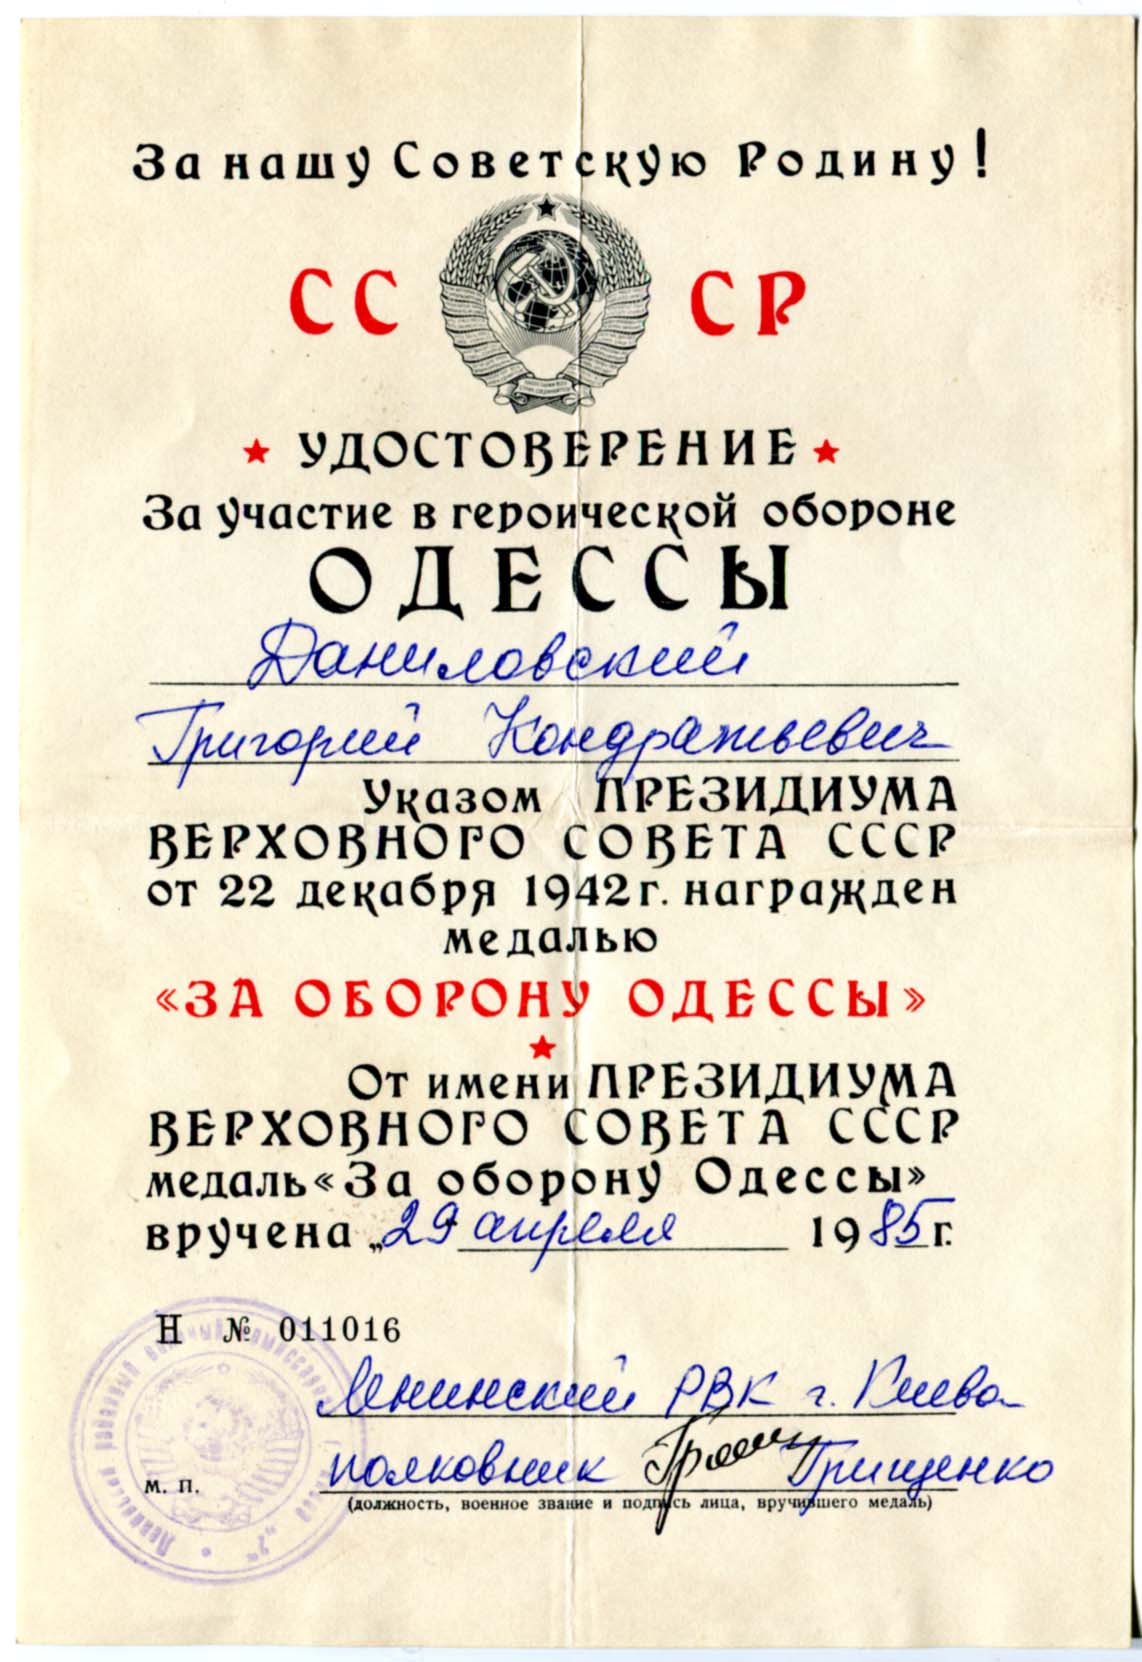 За нашу Советскую Родину!
СССР
УДОСТОВЕРЕНИЕ
За участие в героической обороне
ОДЕССЫ
Даниловский
Григорий Кондратьевич
Указом ПРЕЗИДИУМА
ВЕРХОВНОГО СОВЕТА СССР
от 22 декабря 1942 г. награжден
медалью
«ЗА ОБОРОНУ ОДЕССЫ»
От имени ПРЕЗИДИУМА
ВЕРХОВНОГО СОВЕТА СССР
медаль «За оборону Одессы»
вручена „29 апреля 1985 г.
Н № 011016
Ленинский РВК г. Киева
полковник Грищенко
м. п.
(должность, военное звание и подпись лица, вручившего медаль)